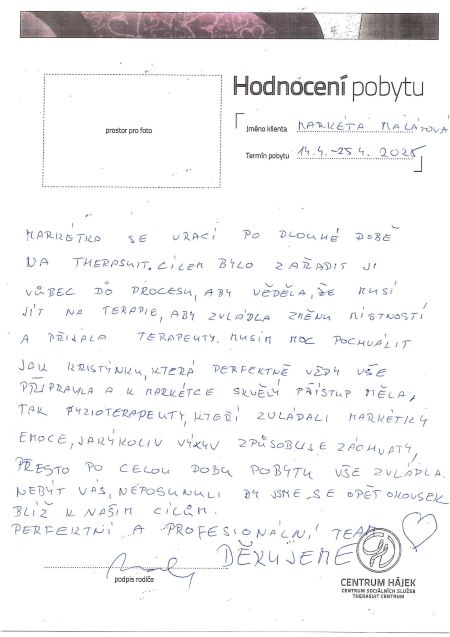 Hodnocení pobytu
prostor pro foto
Jméno klienta MARKÉTA MALÁTOVÁ
Termín pobytu 14.4.-25.4. 2025
MARKÉTKA SE VRACÍ PO DLOUHÉ DOBĚ
NA THERASUIT. CÍLEM BYLO ZAŘADIT JI
VŮBEC DO PROCESU, ABY VĚDĚLA, ŽE MUSÍ
JÍT NA TERAPIE, ABY ZVLÁDLA ZMĚNU MÍSTNOSTÍ
A PŘIJALA TERAPEUTY. MUSÍM MOC POCHVÁLIT
JAK KRISTÝNKU, KTERÁ PERFEKTNĚ VŽDY VŠE
PŘIPRAVILA A K MARKÉTCE SKVĚLÝ PŘÍSTUP MĚLA,
TAK FYZIOTERAPEUTY, KTEŘÍ ZVLÁDALI MARKÉTKY
EMOCE, JAKÝKOLIV VÝKYV ZPŮSOBUJE ZÁCHVATY,
PŘESTO PO CELOU DOBU POBYTU VŠE ZVLÁDLA.
NEBÝT VÁS, NEPOSUNULI BY JSME SE OPĚT O KOUSEK
BLÍŽ K NAŠIM CÍLŮM.
PERFEKTNÍ A PROFESIONÁLNÍ TEAM
DĚKUJEME
podpis rodiče
CENTRUM HÁJEK
CENTRUM SOCIÁLNÍCH SLUŽEB
THERASUIT CENTRUM